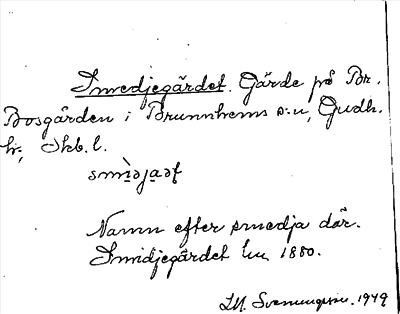 Smedjegärdet. Gärde på Br.
Bosgården i Brunnhems s:n, Gudh.
h:, Skb. l.
Namn efter smedja där.
Smidjegärdet Lm 1880.
Svenungsson. 1949